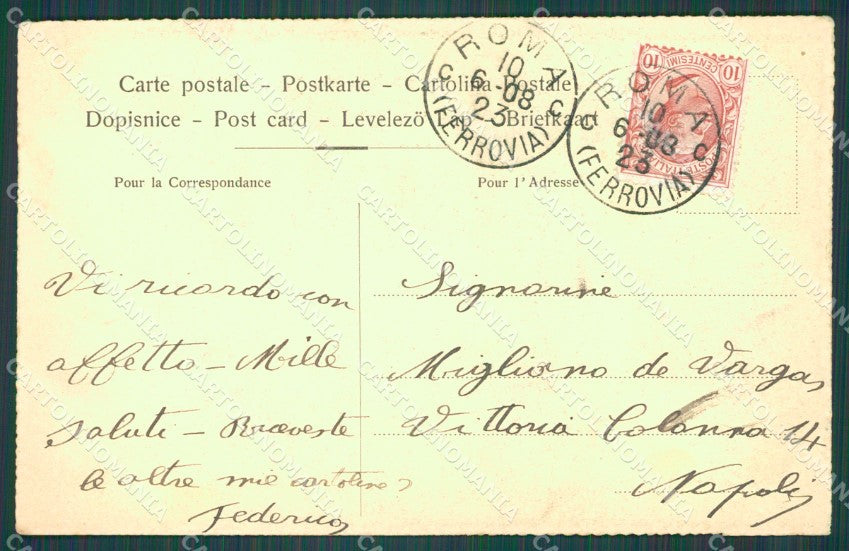 Carte postale – Postkarte – Cartolina Postale
Dopisnice – Post card – Levelező Lap – Briefkaart
Pour la Correspondance
Pour l'Adresse
ROMA
10
6-08
23
C C
(FERROVIA)
ROMA
10
6-08
23
C C
(FERROVIA)
10 CENTESIMI 10
POSTE ITALIANE
Vi ricordo con
affetto – Mille
saluti – Riceveste
le altre mie cartoline?
Federico
Signorine
Migliano de Vargas
Vittoria Colonna 14
Napoli
CARTOLINOMANIA